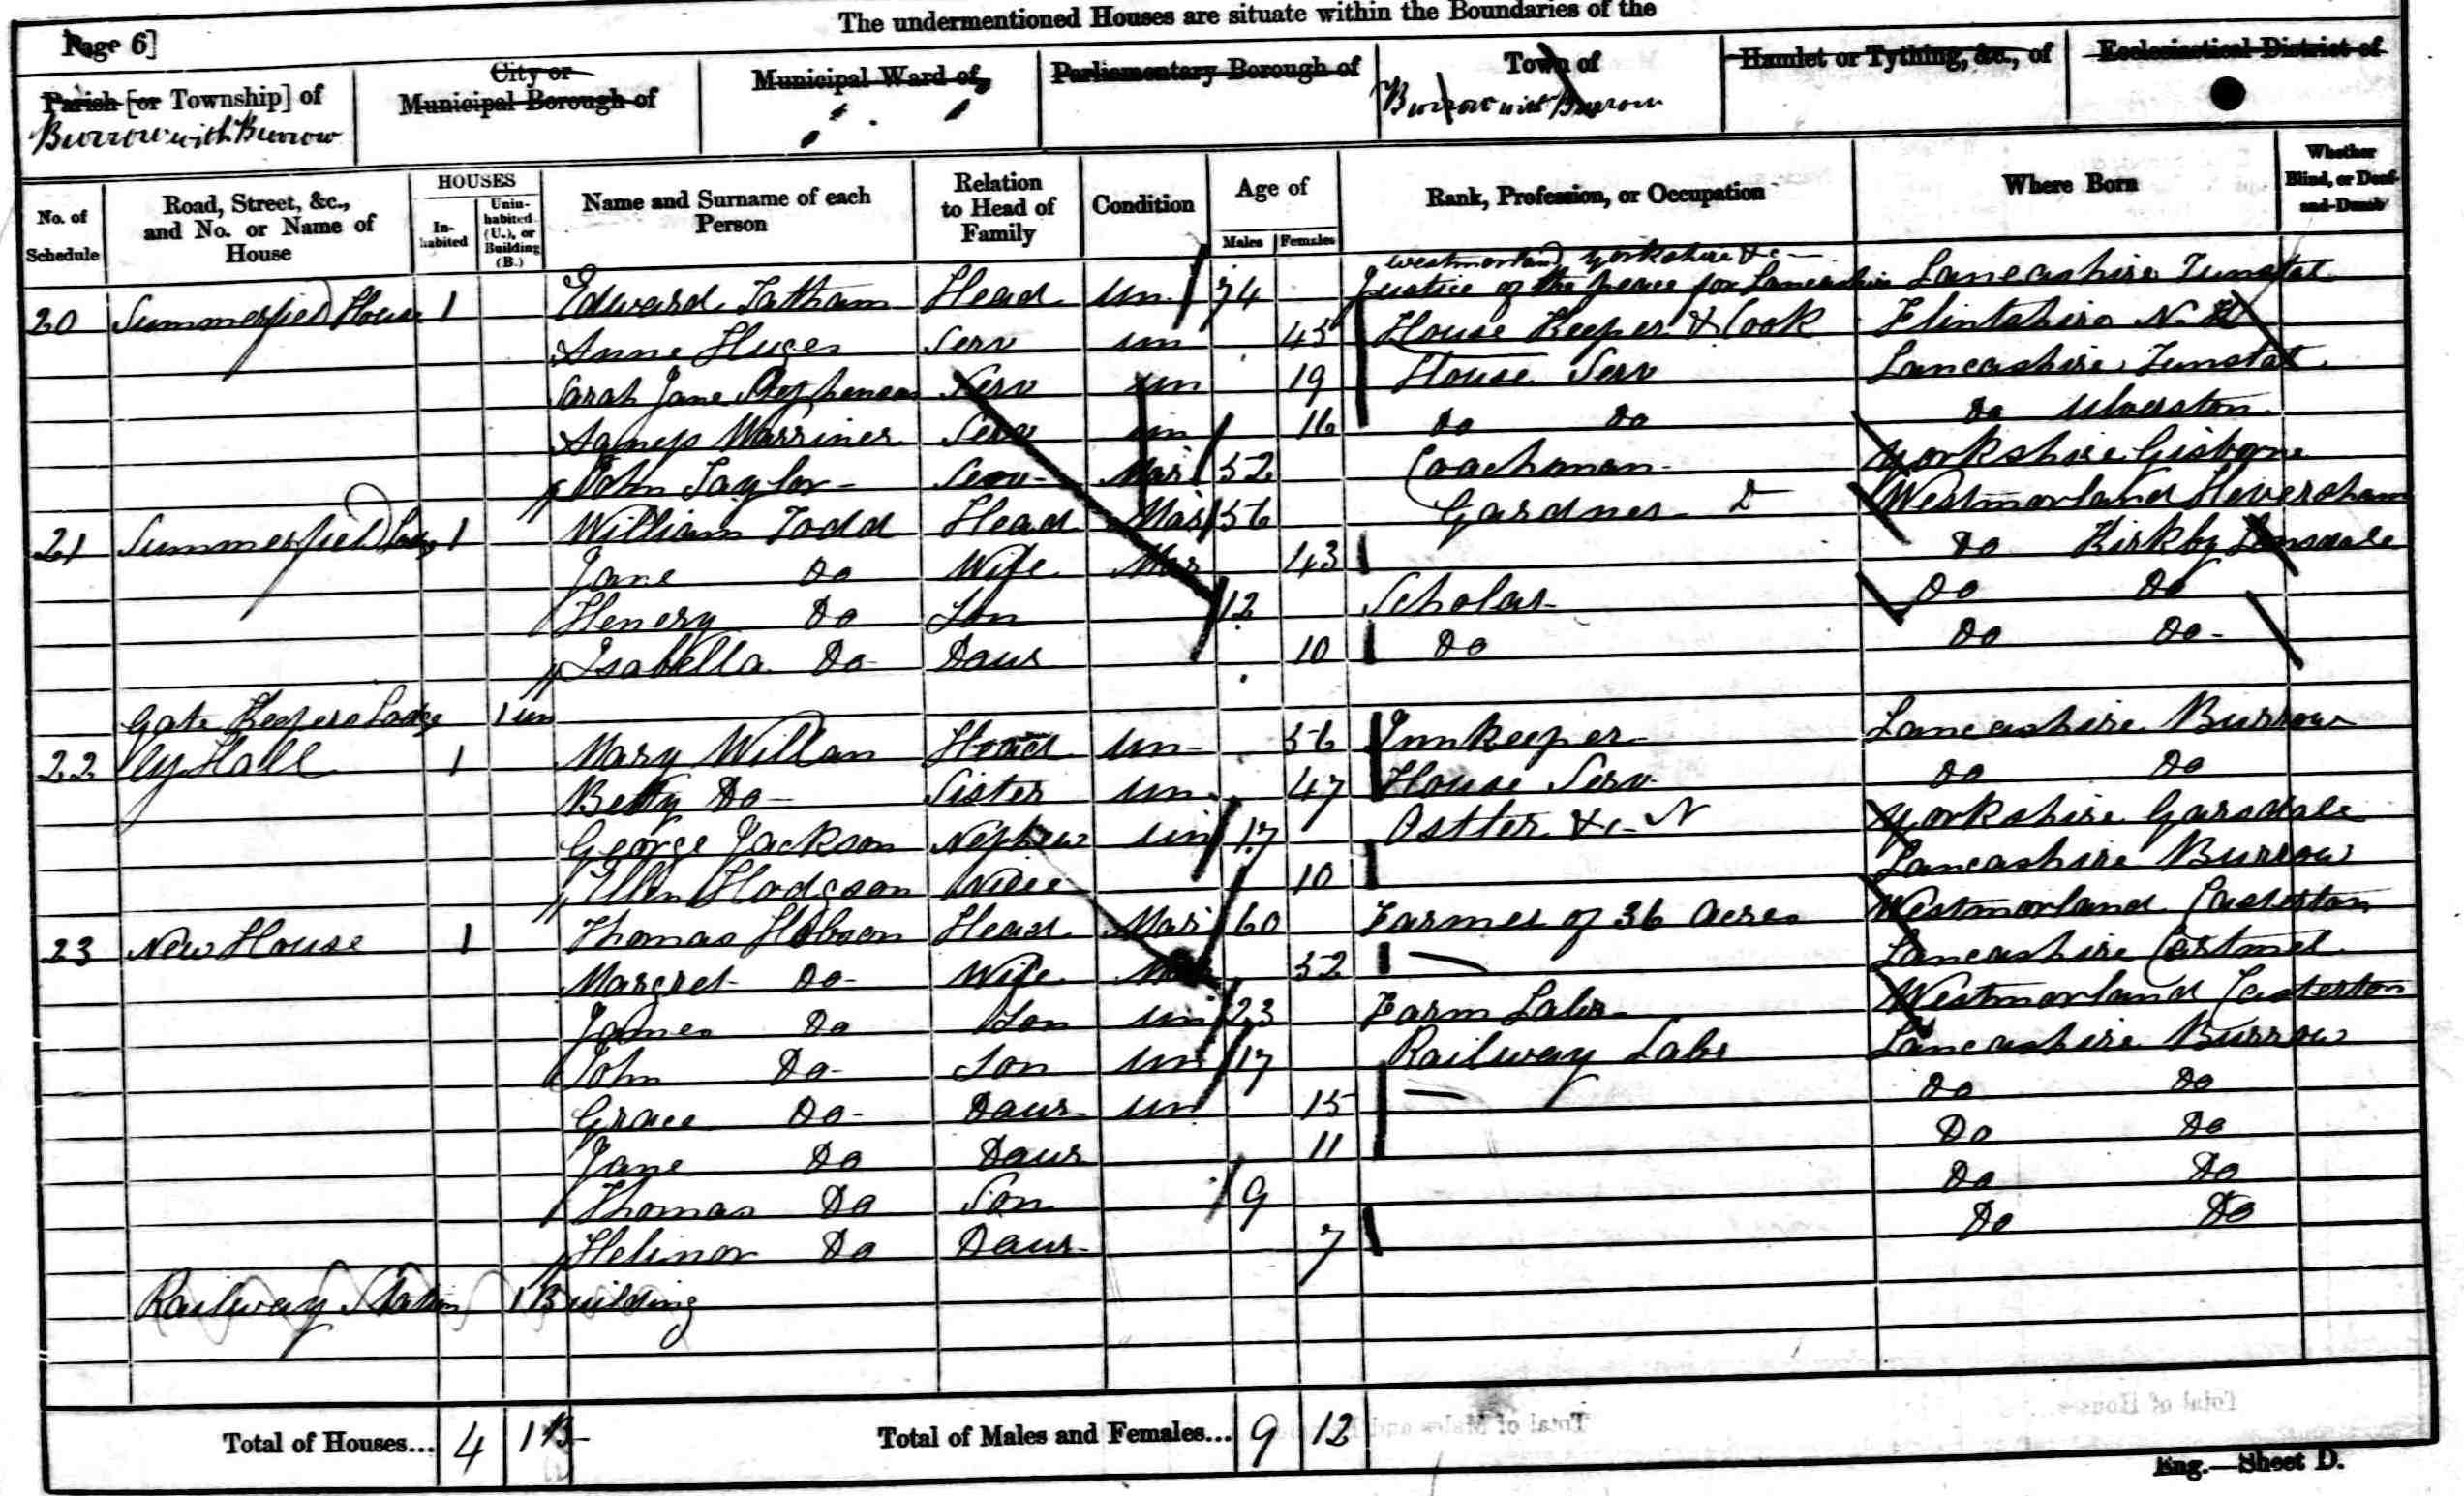 The undermentioned Houses are situate within the Boundaries of the
Page 6]
Parish [or Township] of
Burrow with Burrow
City or
Municipal Borough of
Municipal Ward of
Parliamentary Borough of
Town of
Burrow with Burrow
Hamlet or Tything, &c., of
Ecclesiastical District of
No. of Schedule
Road, Street, &c., and No. or Name of House
HOUSES
Inhabited
Uninhabited (U.), or Building (B.)
Name and Surname of each Person
Relation to Head of Family
Condition
Age of
Males
Females
Rank, Profession, or Occupation
Where Born
Whether Blind, or Deaf-and-Dumb
Westmorland Yorkshire &c
20 Summerfield House 1 Edward Tatham Head Un 74 Justice of the peace for Lancashire Lancashire Tunstal
Anne Huges Serv Un 45 House Keeper & Cook Flintshire N.
Sarah Jane Stephenson Serv Un 19 House Serv Lancashire Tunstal
Agness Warriner Serv Un 16 Do Do Do Ulverston
John Taylor Serv Mar 52 Coachman Yorkshire Gisborne
21 Summerfield 1 William Todd Head Mar 56 Gardner Westmorland Heversham
Jane Do Wife Mar 43 Do Kirkby Lonsdale
Henery Do Son 12 Scholar Do Do
Isabella Do Daur 10 Do Do Do
Gate Keepers Lodge 1 un
22 Hall 1 Mary Willan Head Un 56 Innkeeper Lancashire Burrow
Betty Do Sister Un 47 House Serv Do Do
George Jackson Nephew Un 17 Ostler &c Yorkshire Garsdale
Ellen Hodgson Niece 10 Lancashire Burrow
23 New House 1 Thomas Hobson Head Mar 60 Farmer of 36 Acres Westmorland Casterton
Margret Do Wife Mar 52 Lancashire Cartmel
James Do Son Un 23 Farm Labr Westmorland Casterton
John Do Son Un 17 Railway Labr Lancashire Burrow
Grace Do Daur Un 15 Do Do
Jane Do Daur 11 Do Do
Thomas Do Son 9 Do Do
Helinor Do Daur 7 Do Do
Railway Station 1 Building
Total of Houses... 4 1 B
Total of Males and Females... 9 12
Eng.—Sheet D.